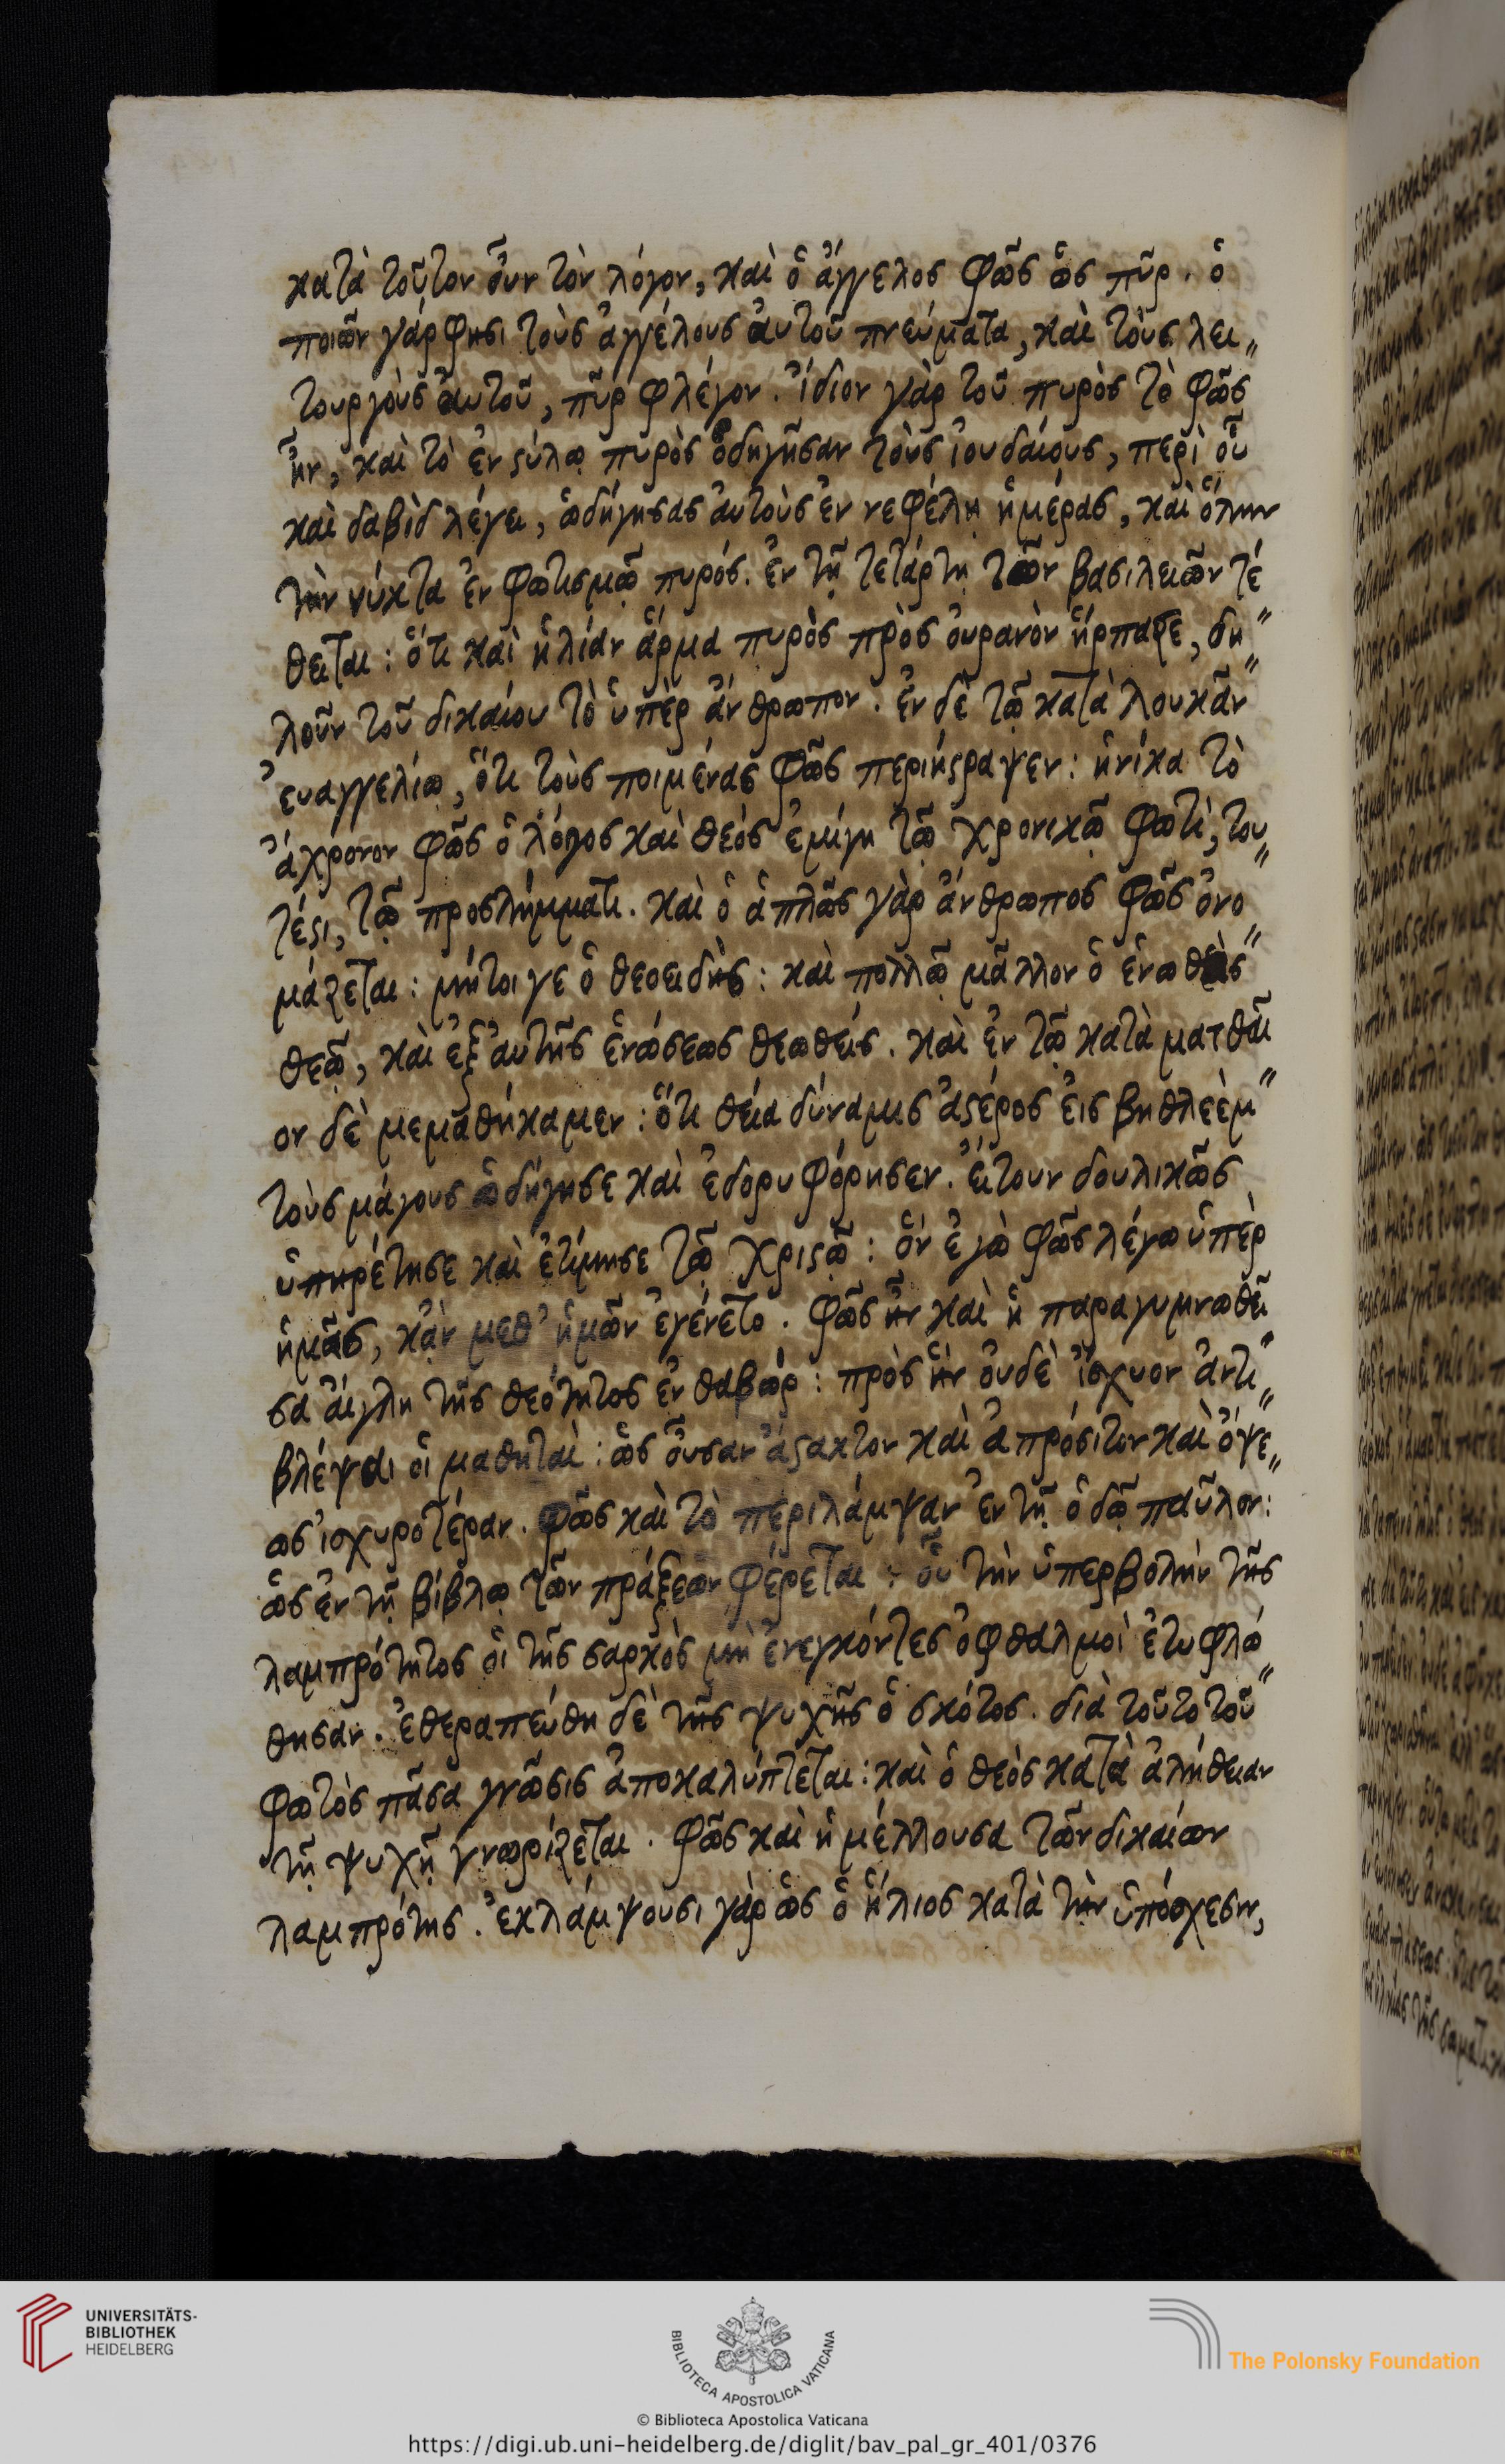 κατὰ τοῦτον οὖν τὸν λόγον, καὶ ὁ ἄγγελος φῶς ὡς πῦρ. ὁ
ποιῶν γάρ φησι τοὺς ἀγγέλους ἀυτοῦ πνεύματα, καὶ τοὺς λει〃
τουργοὺς ἀυτοῦ, πῦρ φλέγον. ἴδιον γὰρ τοῦ πυρὸς τὸ φῶς
ἦν, καὶ τὸ ἐν ϛύλω πυρὸς ὁδηγῆσαν τοὺς ἰουδαίους, περὶ οὗ
καὶ δαβὶδ λέγει, ὡδήγησας ἀυτοὺς ἐν νεφέλη ἡμέρας, καὶ ὅλην
τὴν νύκτα ἐν φωτισμῷ πυρός. ἐν τῇ τετάρτη τῶν βασιλειῶν τέ〃
θειται: ὅτι καὶ ἡλίαν ἅρμα πυρὸς πρὸς ὀυρανὸν ἥρπαξε, δη〃
λοῦν τοῦ δικαίου τὸ ὑπὲρ ἄνθρωπον. ἐν δὲ τῷ κατὰ λουκᾶν
ἐυαγγελίω, ὅτι τοὺς ποιμένας φῶς περιήϛραψεν: ἡνίκα τὸ
ἄχρονον φῶς ὁ λόγος καὶ θεός ἐμίγη τῷ χρονικῷ φωτὶ, του〃
τέϛι, τῷ προσλήμματι. καὶ ὁ ἁπλῶς γὰρ ἄνθρωπος φῶς ὀνο〃
μάζεται: μήτοι γε ὁ θεοειδὴς: καὶ πολλῷ μᾶλλον ὁ ἑνωθεὶς
θεῷ, καὶ ἐξ ἀυτῆς ἑνώσεως θεωθείς. καὶ ἐν τῷ κατὰ ματθαῖ〃
ον δὲ μεμαθήκαμεν: ὅτι θεία δύναμις ἀϛέρος ἐις βηθλεὲμ
τοὺς μάγους ὡδήγησε καὶ ἐδορυφόρησεν. ἔιτουν δουλικῶς
ὑπηρέτησε καὶ ἐτίμησε τῷ χριϛῷ: ὅν ἐγὼ φῶς λέγω ὑπὲρ
ἡμᾶς, κἂν μεθ' ἡμῶν ἐγένετο. φῶς ἦν καὶ ἡ παραγυμνωθεῖ〃
σα ἄιγλη τῆς θεότητος ἐν θαβώρ: πρὸς ἣν ὀυδὲ ἴσχυον ἀντι〃
βλέψαι ὁι μαθηταὶ: ὡς ὀυσαν ἄϛακτον καὶ ἀπρόσιτον καὶ ὄψε〃
ως ἰσχυροτέραν. φῶς καὶ τὸ περιλάμψαν ἐν τῇ ὁδῷ παῦλον:
ὡς ἐν τῇ βίβλω τῶν πράξεων φέρεται: οὗ τὴν ὑπερβολὴν τῆς
λαμπρότητος ὁι τῆς σαρκὸς μὴ ἐνεγκόντες ὀφθαλμοὶ ἐτυφλώ〃
θησαν. ἐθεραπεύθη δὲ τῆς ψυχῆς ὁ σκότος. διὰ τοῦτο τοῦ
φωτὸς πᾶσα γνῶσις ἀποκαλύπτεται: καὶ ὁ θεὸς κατὰ ἀλήθειαν
τῇ ψυχῇ γνωρίζεται. φῶς καὶ ἡ μέλλουσα τῶν δικαίων
λαμπρότης. ἐκλάμψουσι γὰρ ὡς ὁ ἥλιος κατὰ τὴν ὑπόσχεσιν,
UNIVERSITÄTS-
BIBLIOTHEK
HEIDELBERG
BIBLIOTECA APOSTOLICA VATICANA
The Polonsky Foundation
© Biblioteca Apostolica Vaticana
https://digi.ub.uni-heidelberg.de/diglit/bav_pal_gr_401/0376